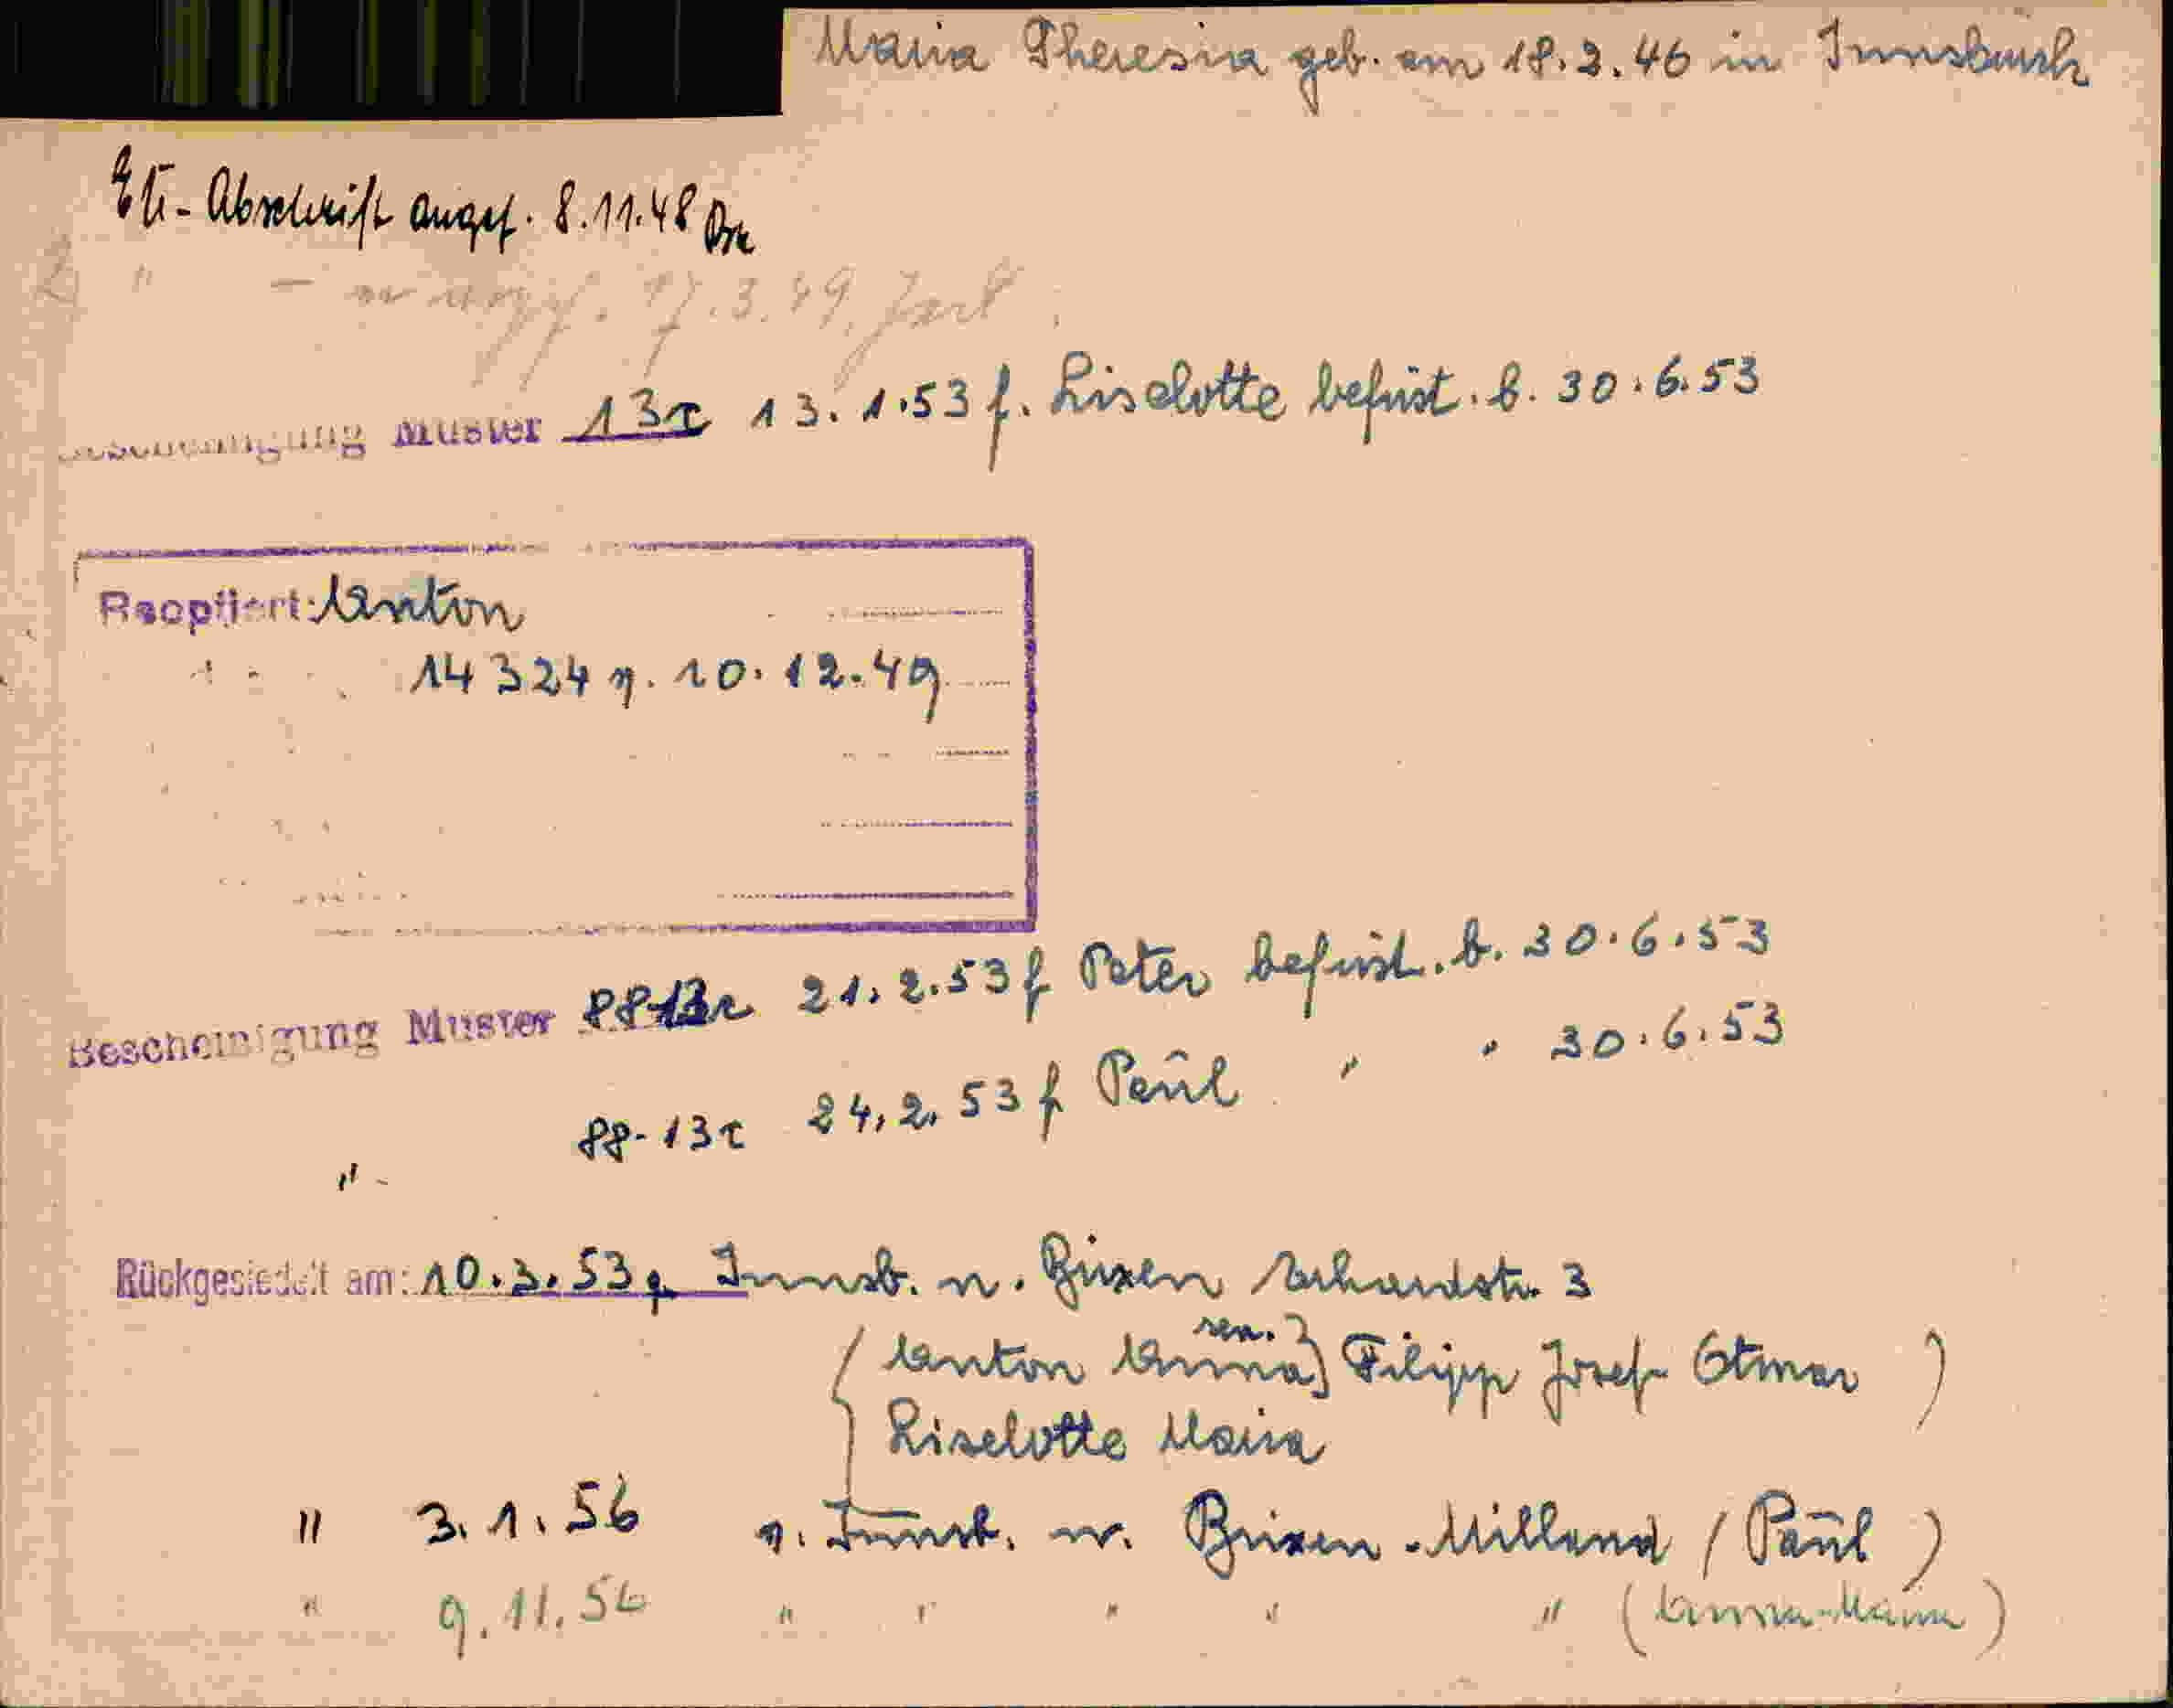 Maria Theresia geb. am 18.2.46 in Innsbruck
Abschrift angef. 8.11.48
" - 17.3.49
Muster 13r 13.1.53 f. Liselotte befrist. b. 30.6.53
Reoptiert: Anton
14324 v. 10.12.49
Bescheinigung Muster 88-13r 21.2.53 f Peter befrist. b. 30.6.53
" 88-13r 24.2.53 f Paul " " 30.6.53
Rückgesiedelt am: 10.3.53 v. Innsb. n. Brixen Erhardstr. 3
( Anton Anna sen. ) Filipp Josef Otmar )
Liselotte Maria
" 3.1.56 v. Innsb. n. Brixen-Milland (Paul)
" 9.11.56 " " " " " (Anna-Maria)